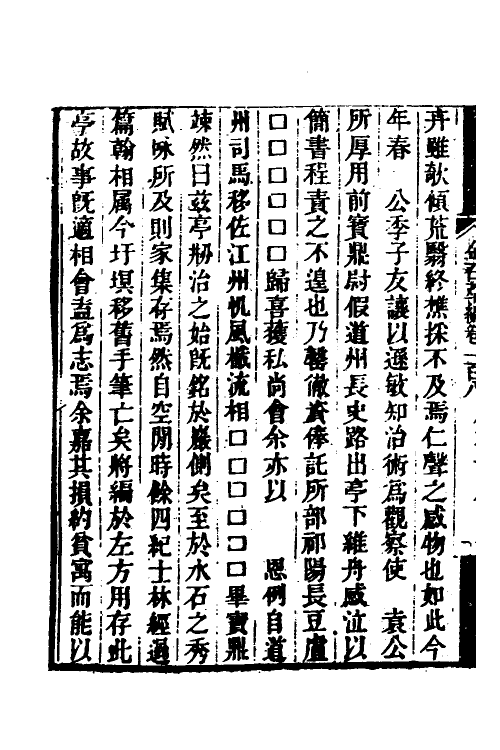 卉雖欹傾荒翳終樵採不及焉仁聲之感物也如此今
年春　公季子友讓以遜敏知治術爲觀察使　袁公
所厚用前寶鼎尉假道州長史路出亭下維舟感泣以
簡書程責之不遑也乃罄徹資俸託所部祁陽長豆盧
□□□□□□歸喜獲私尚會余亦以　　恩例自道
州司馬移佐江州帆風檝流相□□□□□□畢寶鼎
竦然曰兹亭刱治之始旣銘於巖側矣至於水石之秀
賦詠所及則家集存焉然自空閒時餘四紀士林經過
篇翰相屬今圬塓移舊手筆亡矣將編於左方用存此
亭故事旣適相會盍爲志焉余嘉其損約貧寓而能以
金石萃編卷一百八